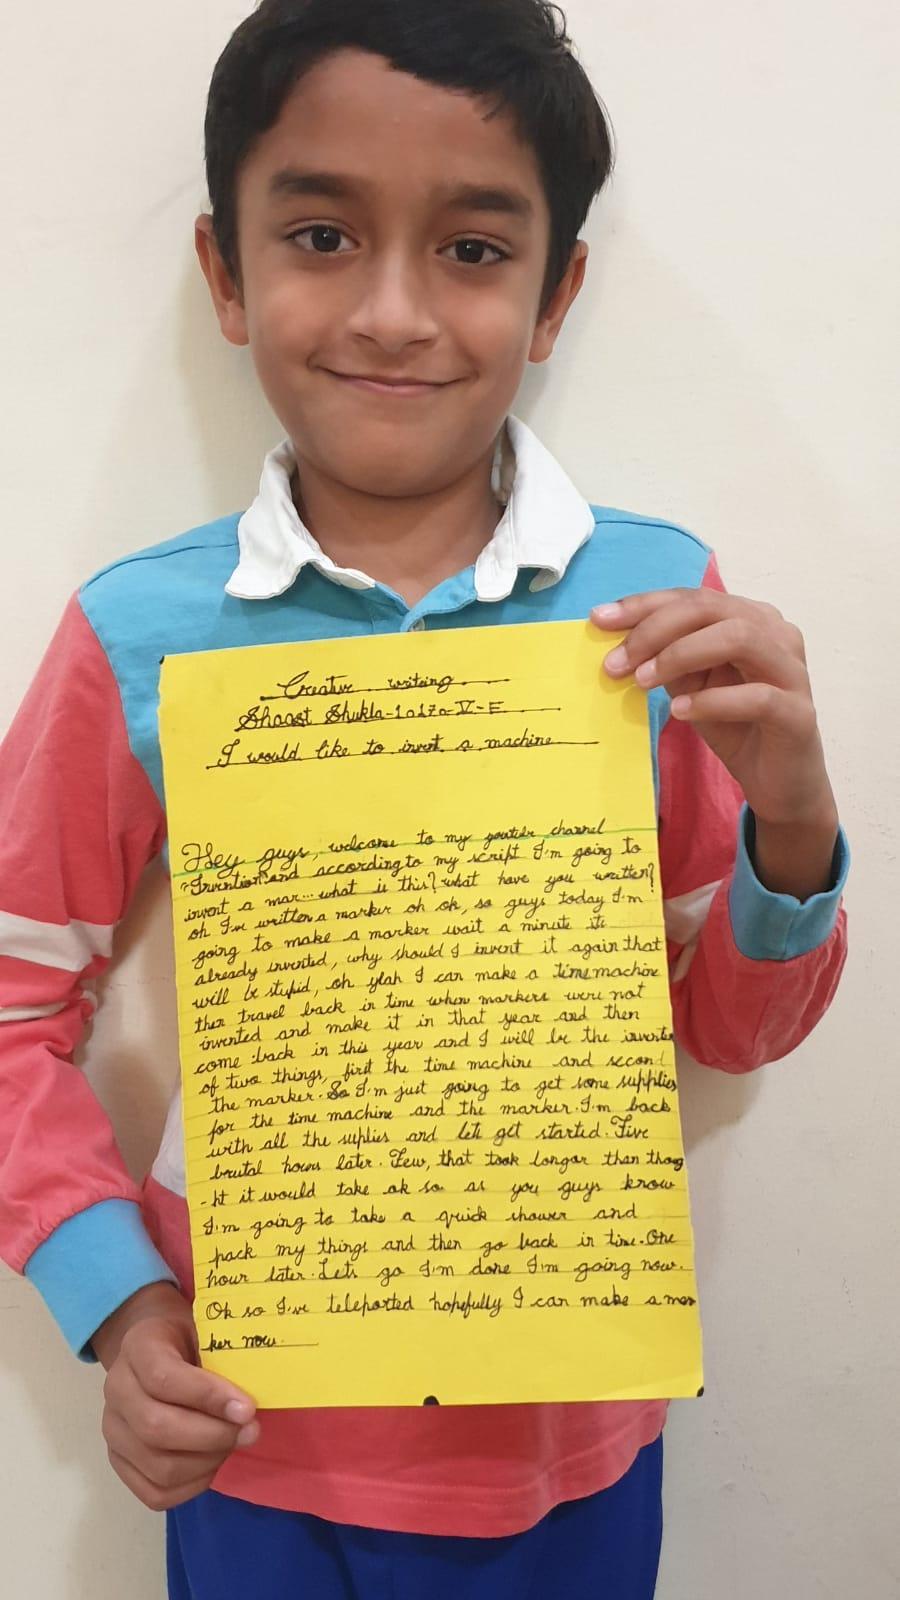 Creative writing
Shaast Shukla-10170-V-E
I would like to invent a machine
Hey guys, welcome to my channel
"Invention" and according to my script I'm going to
invent a mar... what is this? what have you written?
oh I've written a marker oh ok, so guys today I'm
going to make a marker wait a minute its
already invented, why should I invent it again that
will be stupid, oh yeah I can make a time machine
then travel back in time when markers were not
invented and make it in that year and then
come back in this year and I will be the inventer
of two things, first the time machine and second
the marker. So I'm just going to get some supplies
for the time machine and the marker. I'm back
with all the suplies and lets get started. Five
brutal hours later. Few, that took longar than thoug
-ht it would take ok so as you guys know
I'm going to take a quick shower and
pack my things and then go back in time. One
hour later. Lets go I'm done I'm going now.
Ok so I've teleported hopefully I can make a mar
ker now.